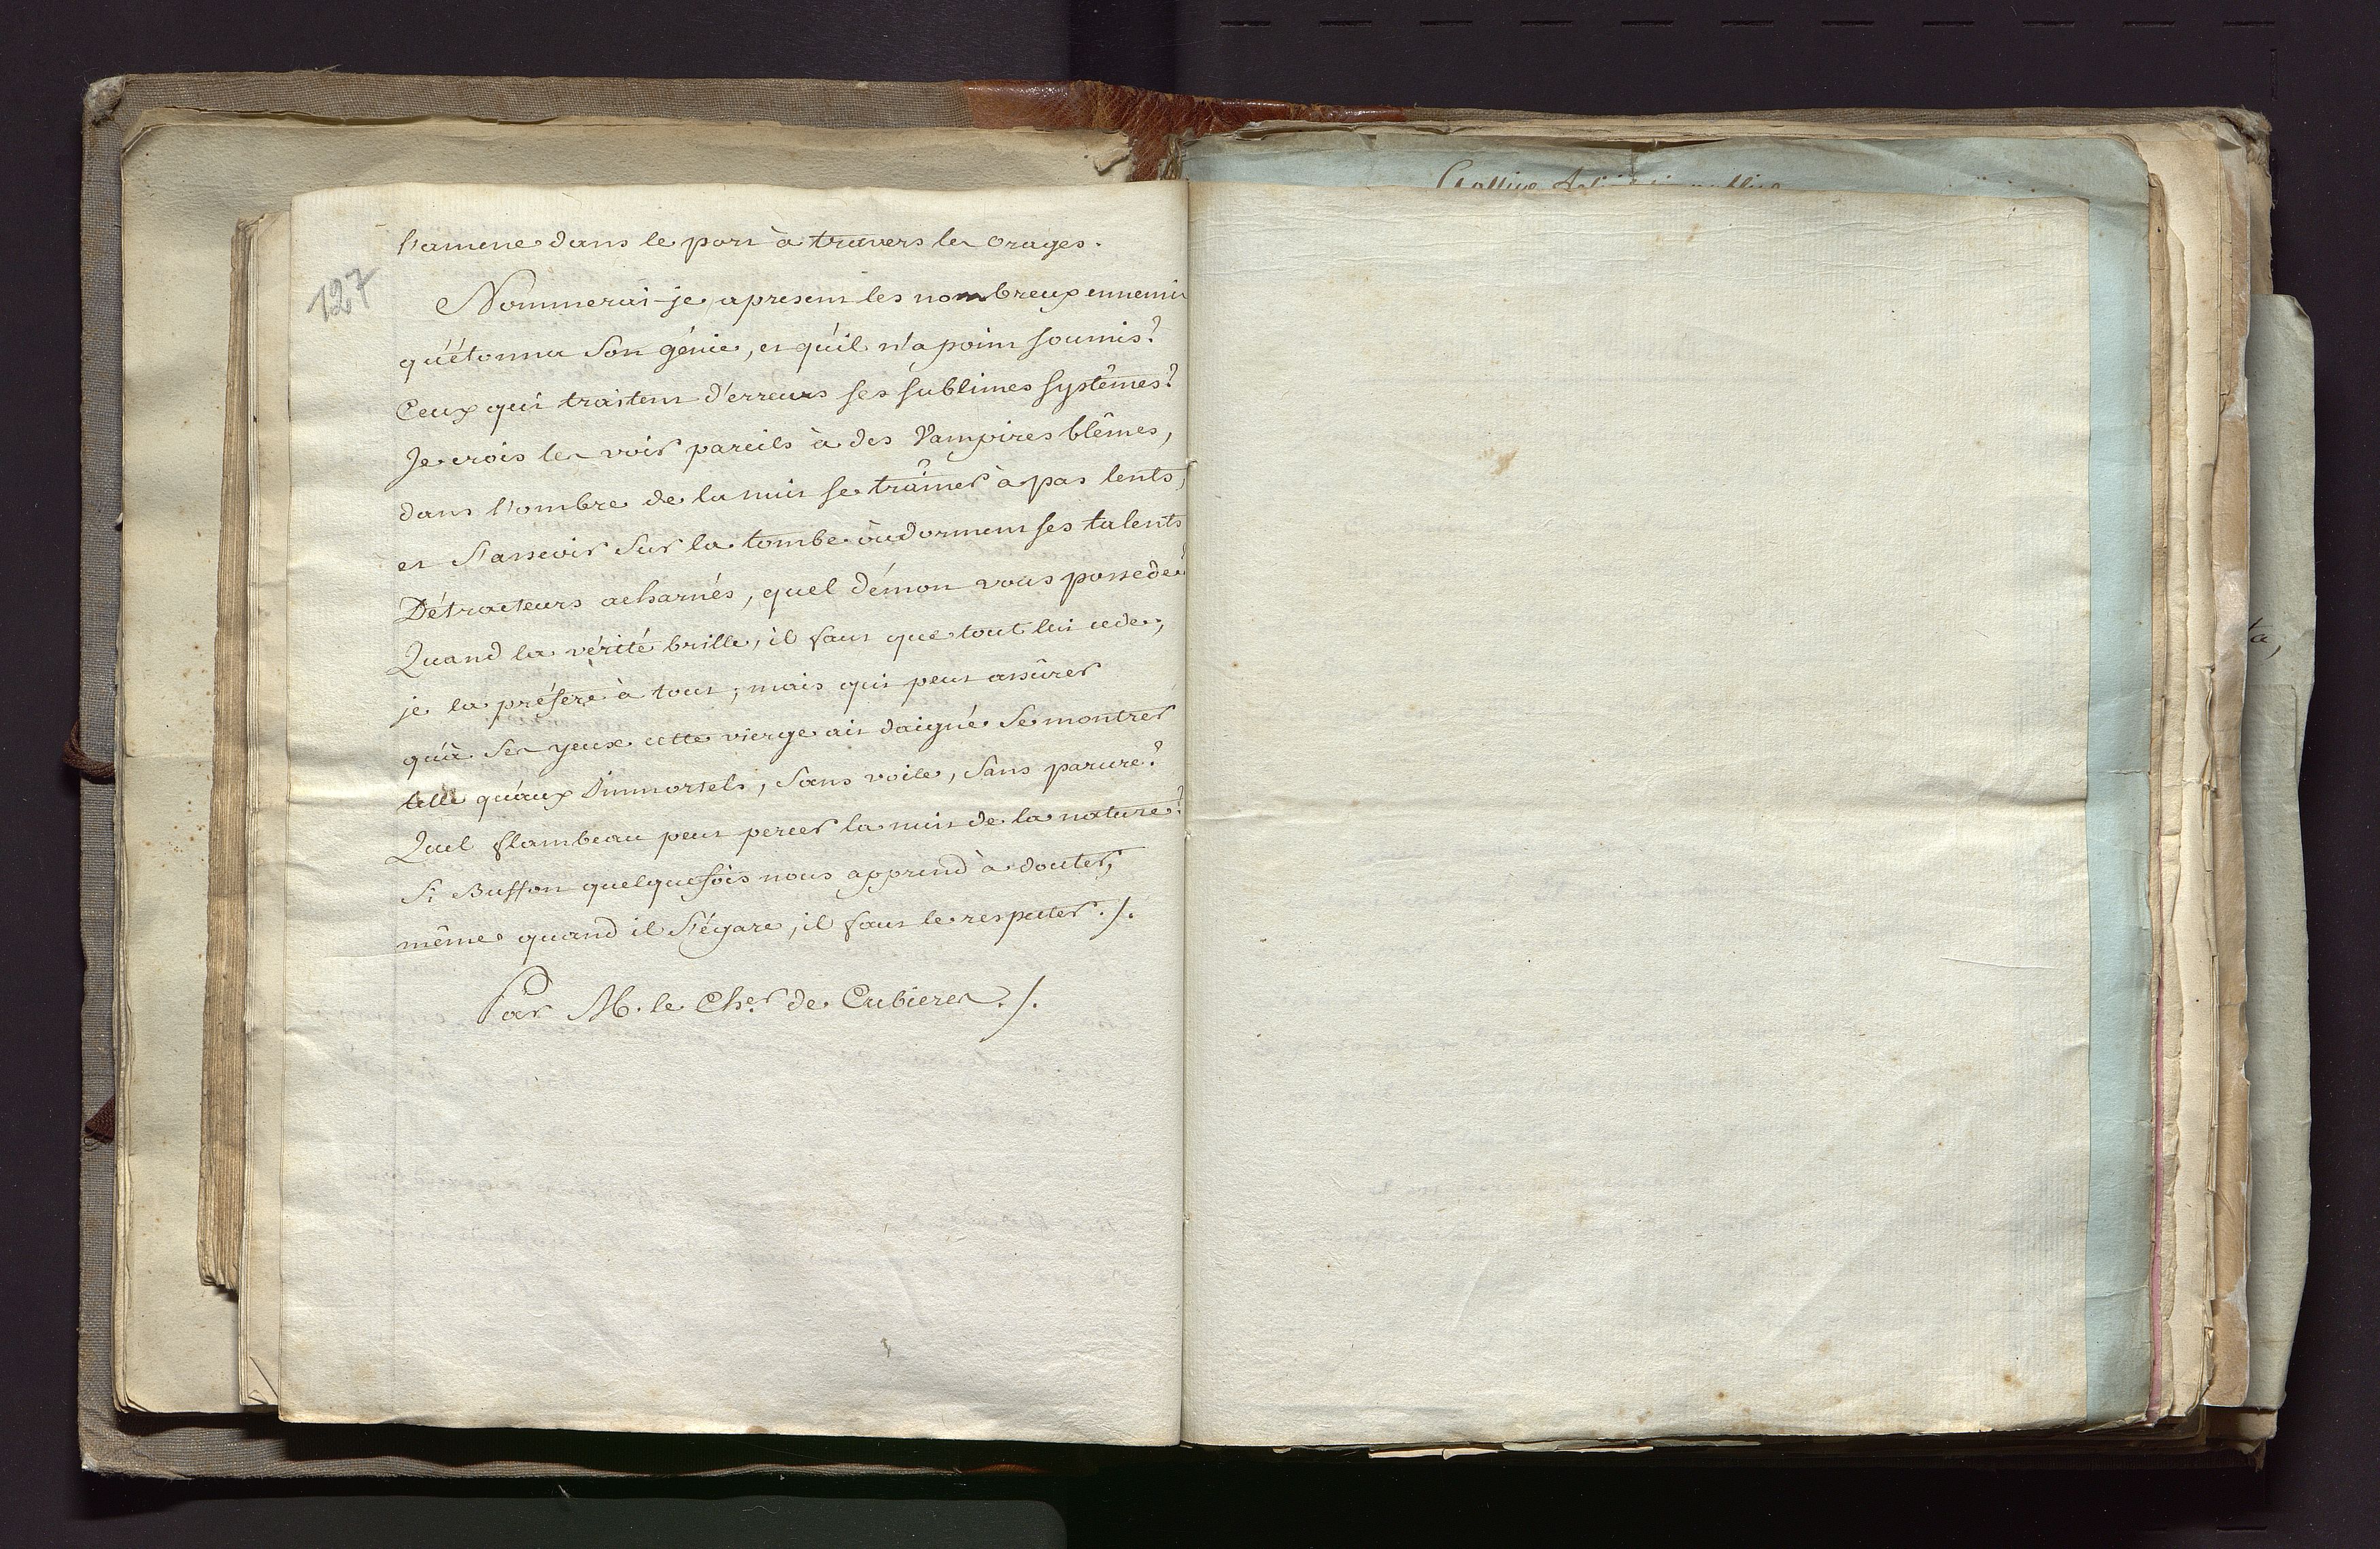 l'amene dans le port à travers les orages.
127
Nommerai-je apresent les nombreux ennemis
qu'étonna son génie, et qu'il n'a point soumis?
Ceux qui traitent d'erreurs ses sublimes systêmes?
Je crois les voir pareils à des Vampires blêmes,
dans l'ombre de la nuit se traîner à pas lents,
et s'asseoir sur la tombe òu dorment ses talents
Détracteurs acharnés, quel démon vous possede?
Quand la vérité brille, il faut que tout lui cede,
je la préfere à tout; mais qui peut assûrer
qu'à ses yeux cette vierge ait daigné se montrer
telle qu'aux immortels, sans voile, sans parure?
Quel flambeau peut percer la nuit de la nature?
Si Buffon quelquefois nous apprend à douter,
même quand il s'égare, il faut le respecter./.
Par M. le Cher. de Cubieres./.
ta,